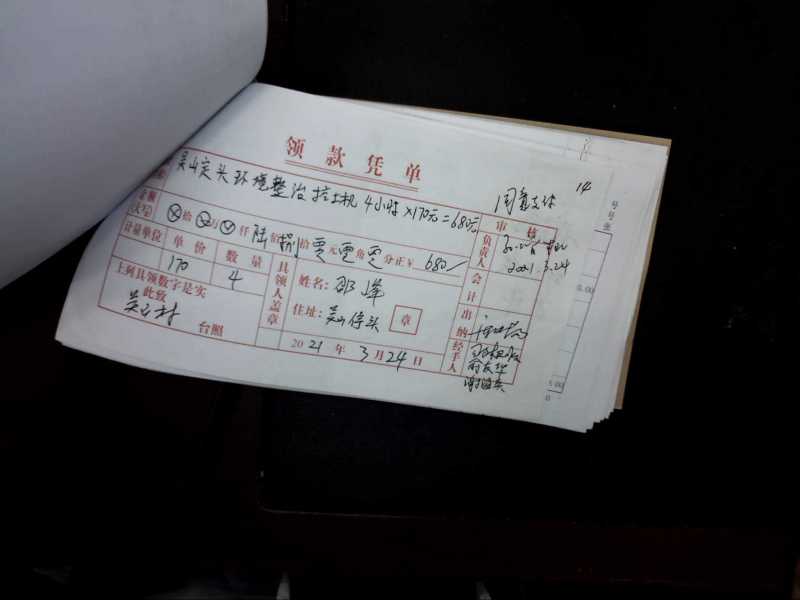 领款凭单
14
同意支付
吴山定头环境整治挖土机4小时×170元=680元
金额
(大写)
拾 万 仟 陆 佰 捌 拾 零 元 零 角 零 分正¥ 680
计量单位 单价 数量
170 4
上列具领数字是实
此致
吴山村
台照
具领人盖章
姓名: 邵峰
住址: 吴山停头
章
2021年3月24日
审核
负责人
2021.3.24
会计
出纳
经手人
号号张